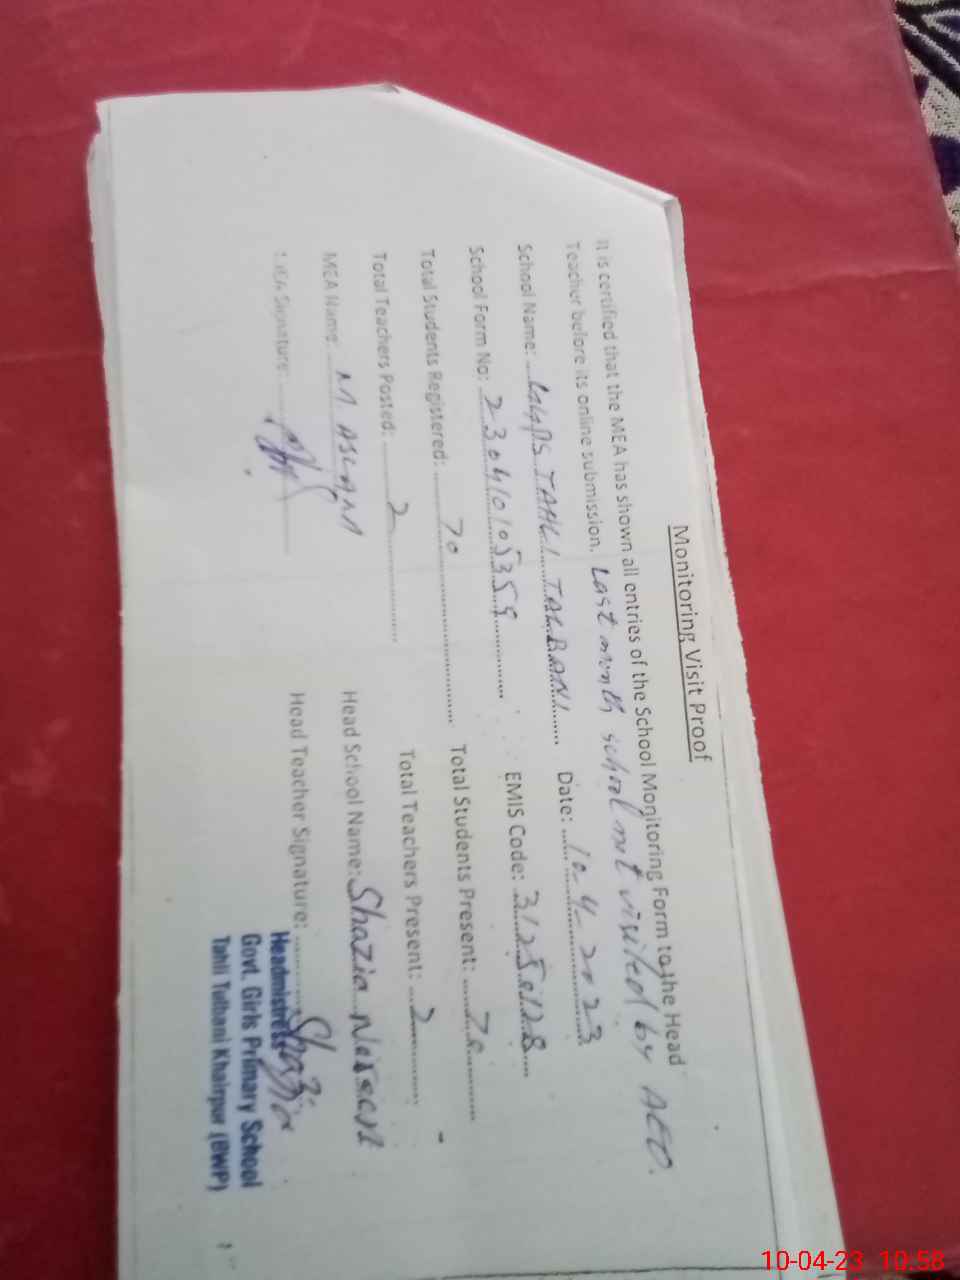 Monitoring Visit Proof
It is certified that the MEA has shown all entries of the School Monitoring Form to the Head
Teacher before its online submission. Last month school not visited by AEO.
School Name: GGPS TAHLI TALBANI Date: 10-4-2023
School Form No: 230410105359 EMIS Code:
Total Students Registered: 70 Total Students Present: 70
Total Teachers Posted: 2 Total Teachers Present: 2
MEA Name: M. ASLAM Head School Name: Shazia
MEA Signature: Head Teacher Signature: Shazia
Headmistress
Govt. Girls Primary School
Tahli Tulbani Khairpur (BWP)
10-04-23 10:58